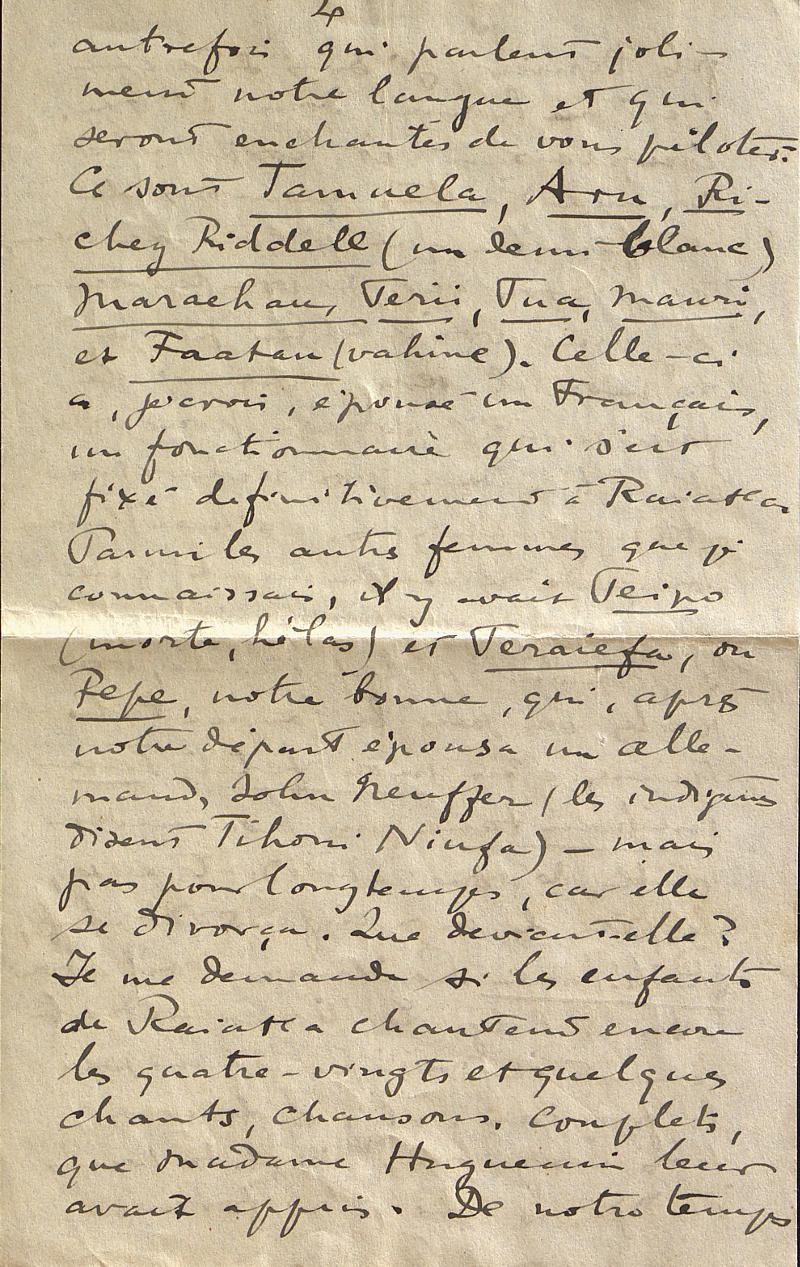 4
autrefois qui parlent joli-
ment notre langue et qui
seront enchantés de vous piloter.
Ce sont Tamuela, Aru, Ri-
chey Riddell (un demi-blanc)
Maraehau, Terii, Tua, Mauri,
et Faatau (vahine). Celle-ci
a, je crois, épousé un Français,
un fonctionnaire qui s'est
fixé définitivement à Raiatea
Parmi les autres femmes que je
connaissais, il y avait Teipo
(morte, hélas) et Teraiefa, ou
Pepe, notre bonne, qui, après
notre départ épousa un alle-
mand, John Neuffer (les indigènes
disent Tihoni Niufa) – mais
pas pour longtemps, car elle
se divorça. Que devient-elle?
Je me demande si les enfants
de Raiatea chantent encore
les quatre-vingts et quelques
chants, chansons, couplets,
que Madame Huguenin leur
avait appris. De notre temps